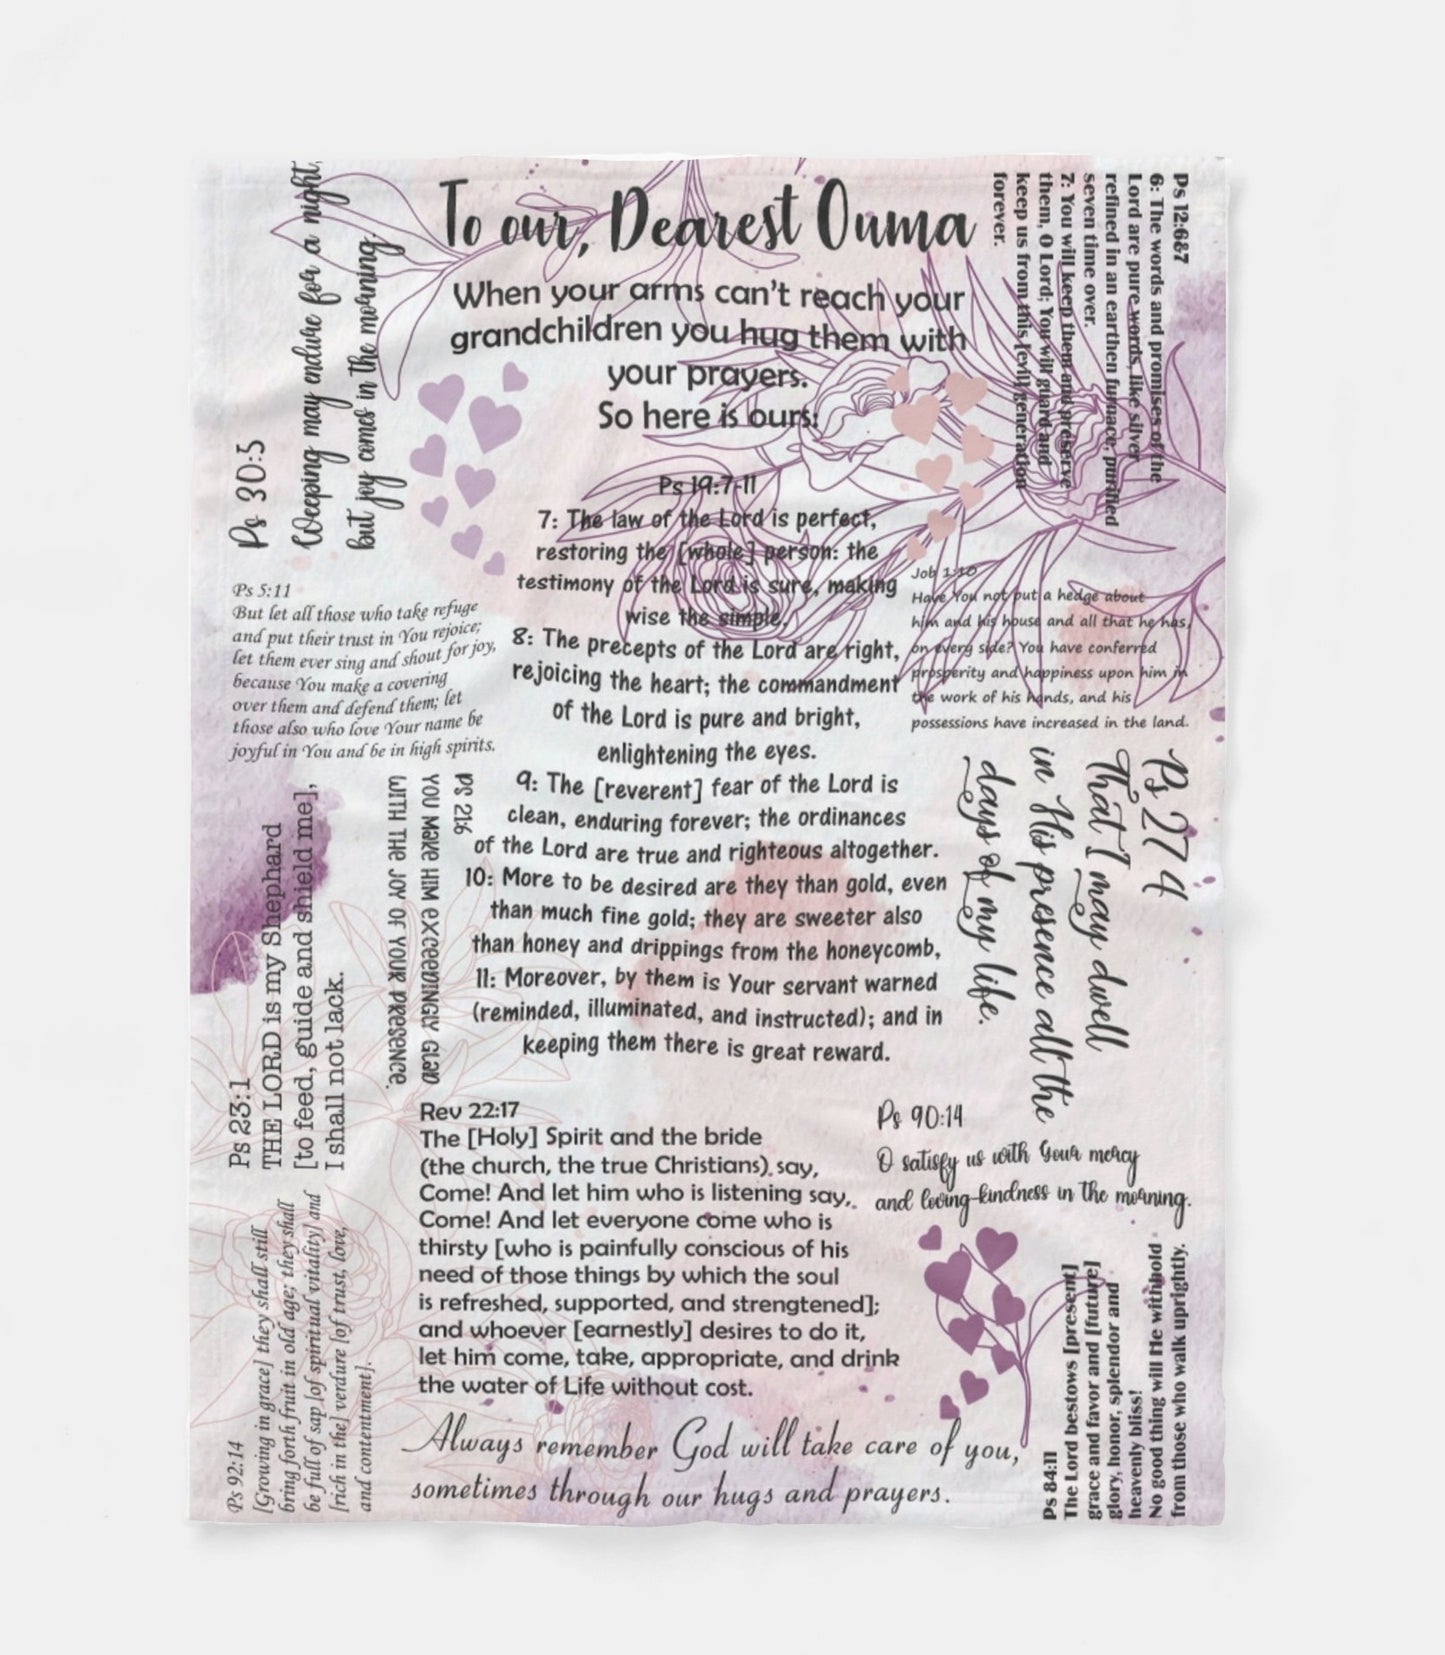 To our, Dearest Ouma
When your arms can't reach your
grandchildren you hug them with
your prayers.
So here is ours:
Ps 30:5
Weeping may endure for a night,
but joy comes in the morning.
Ps 12:6&7
6: The words and promises of the
Lord are pure words, like silver
refined in an earthen furnace, purified
seven time over.
7: You will keep them and preserve
them, O Lord; You will guard and
keep us from this [evil] generation
forever.
Ps 19:7-11
7: The law of the Lord is perfect,
restoring the [whole] person: the
testimony of the Lord is sure, making
wise the simple.
8: The precepts of the Lord are right,
rejoicing the heart; the commandment
of the Lord is pure and bright,
enlightening the eyes.
9: The [reverent] fear of the Lord is
clean, enduring forever; the ordinances
of the Lord are true and righteous altogether.
10: More to be desired are they than gold, even
than much fine gold; they are sweeter also
than honey and drippings from the honeycomb,
11: Moreover, by them is Your servant warned
(reminded, illuminated, and instructed); and in
keeping them there is great reward.
Ps 5:11
But let all those who take refuge
and put their trust in You rejoice;
let them ever sing and shout for joy,
because You make a covering
over them and defend them; let
those also who love Your name be
joyful in You and be in high spirits.
Job 1:10
Have You not put a hedge about
him and his house and all that he has,
on every side? You have conferred
prosperity and happiness upon him in
the work of his hands, and his
possessions have increased in the land.
Ps 23:1
THE LORD is my Shephard
[to feed, guide and shield me],
I shall not lack.
PS 21:6
YOU MAKE HIM EXCEEDINGLY GLAD
WITH THE JOY OF YOUR PRESENCE.
Ps 27 4
That I may dwell
in His presence all the
days of my life.
Rev 22:17
The [Holy] Spirit and the bride
(the church, the true Christians) say,
Come! And let him who is listening say,.
Come! And let everyone come who is
thirsty [who is painfully conscious of his
need of those things by which the soul
is refreshed, supported, and strengtened];
and whoever [earnestly] desires to do it,
let him come, take, appropriate, and drink
the water of Life without cost.
Ps 90:14
O satisfy us with Your mercy
and loving-kindness in the morning.
Ps 92:14
[Growing in grace] they shall still
bring forth fruit in old age; they shall
be full of sap [of spiritual vitality] and
[rich in the] verdure [of trust, love,
and contentment].
Ps 84:11
The Lord bestows [present]
grace and favor and [future]
glory, honor, splendor and
heavenly bliss!
No good thing will He withhold
from those who walk uprightly.
Always remember God will take care of you,
sometimes through our hugs and prayers.